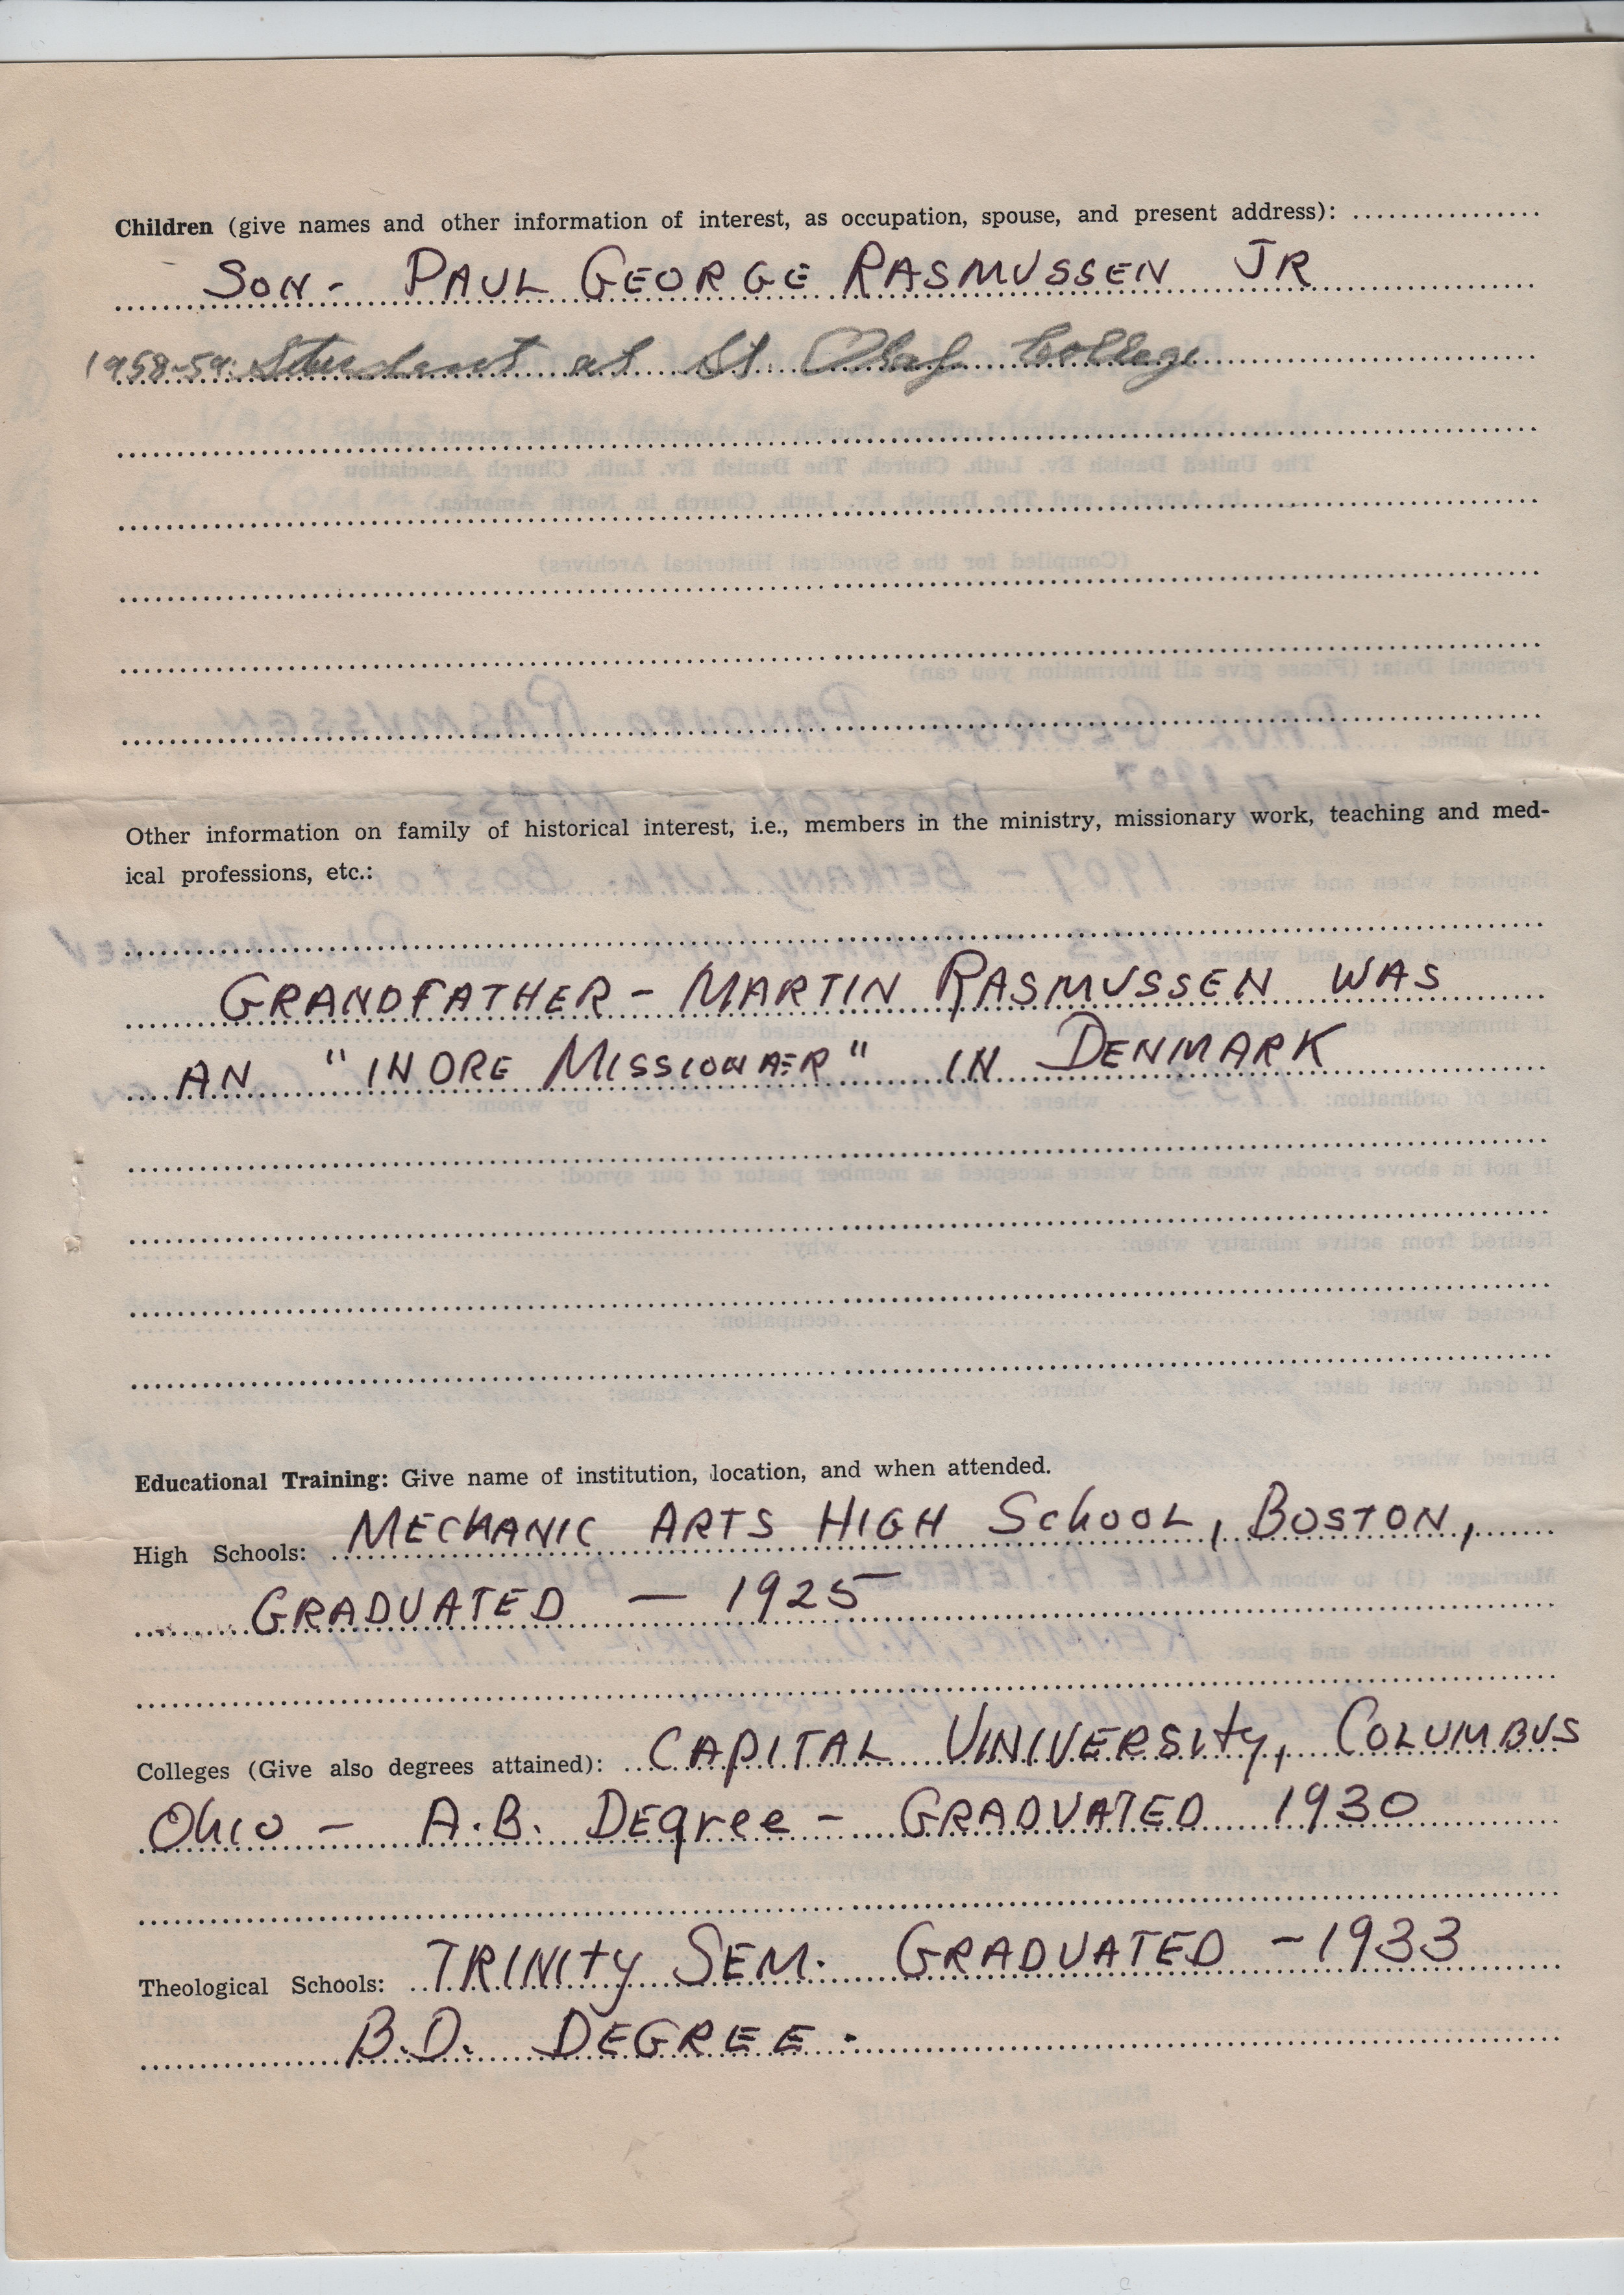 Children (give names and other information of interest, as occupation, spouse, and present address):
SON - PAUL GEORGE RASMUSSEN JR
1958-59: Student at St. Olaf College
Other information on family of historical interest, i.e., members in the ministry, missionary work, teaching and med-
ical professions, etc.:
GRANDFATHER - MARTIN RASMUSSEN WAS
AN "INDRE MISSIONAER" IN DENMARK
Educational Training: Give name of institution, location, and when attended.
High Schools: MECHANIC ARTS HIGH SCHOOL, BOSTON,
GRADUATED — 1925
Colleges (Give also degrees attained): CAPITAL UNIVERSITY, COLUMBUS
Ohio - A.B. DEgree - GRADUATED 1930
Theological Schools: TRINITY SEM. GRADUATED - 1933
B.D. DEGREE.